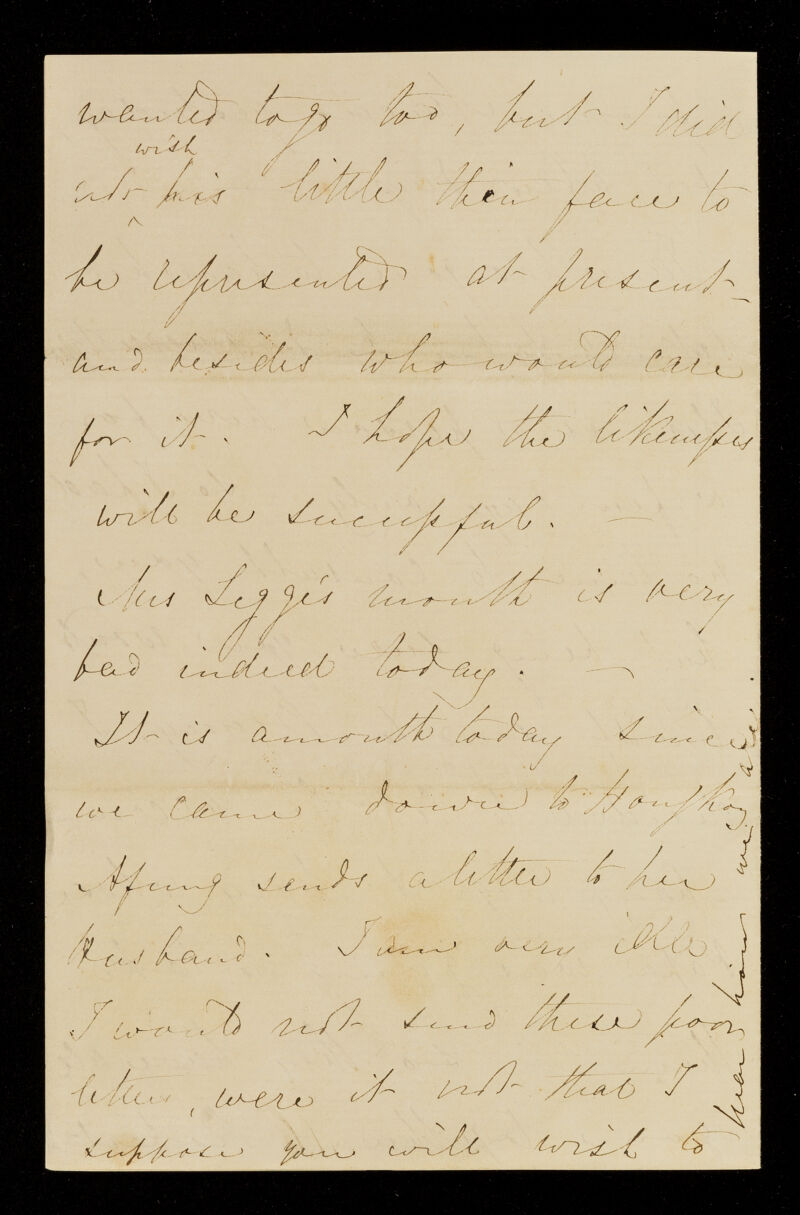 wanted to go too, but I did
not ^wish his little thin face to
be represented at present –
and besides who would care
for it. I hope the likenesses
will be successful. —
Mrs Legge's mouth is very
bad indeed today. —
It is a month today since
we came down to HongKong
Afung sends a letter to her
Husband. I am very idle
I would not send these poor
letters, were it not that I
suppose you will wish to
hear how we are.